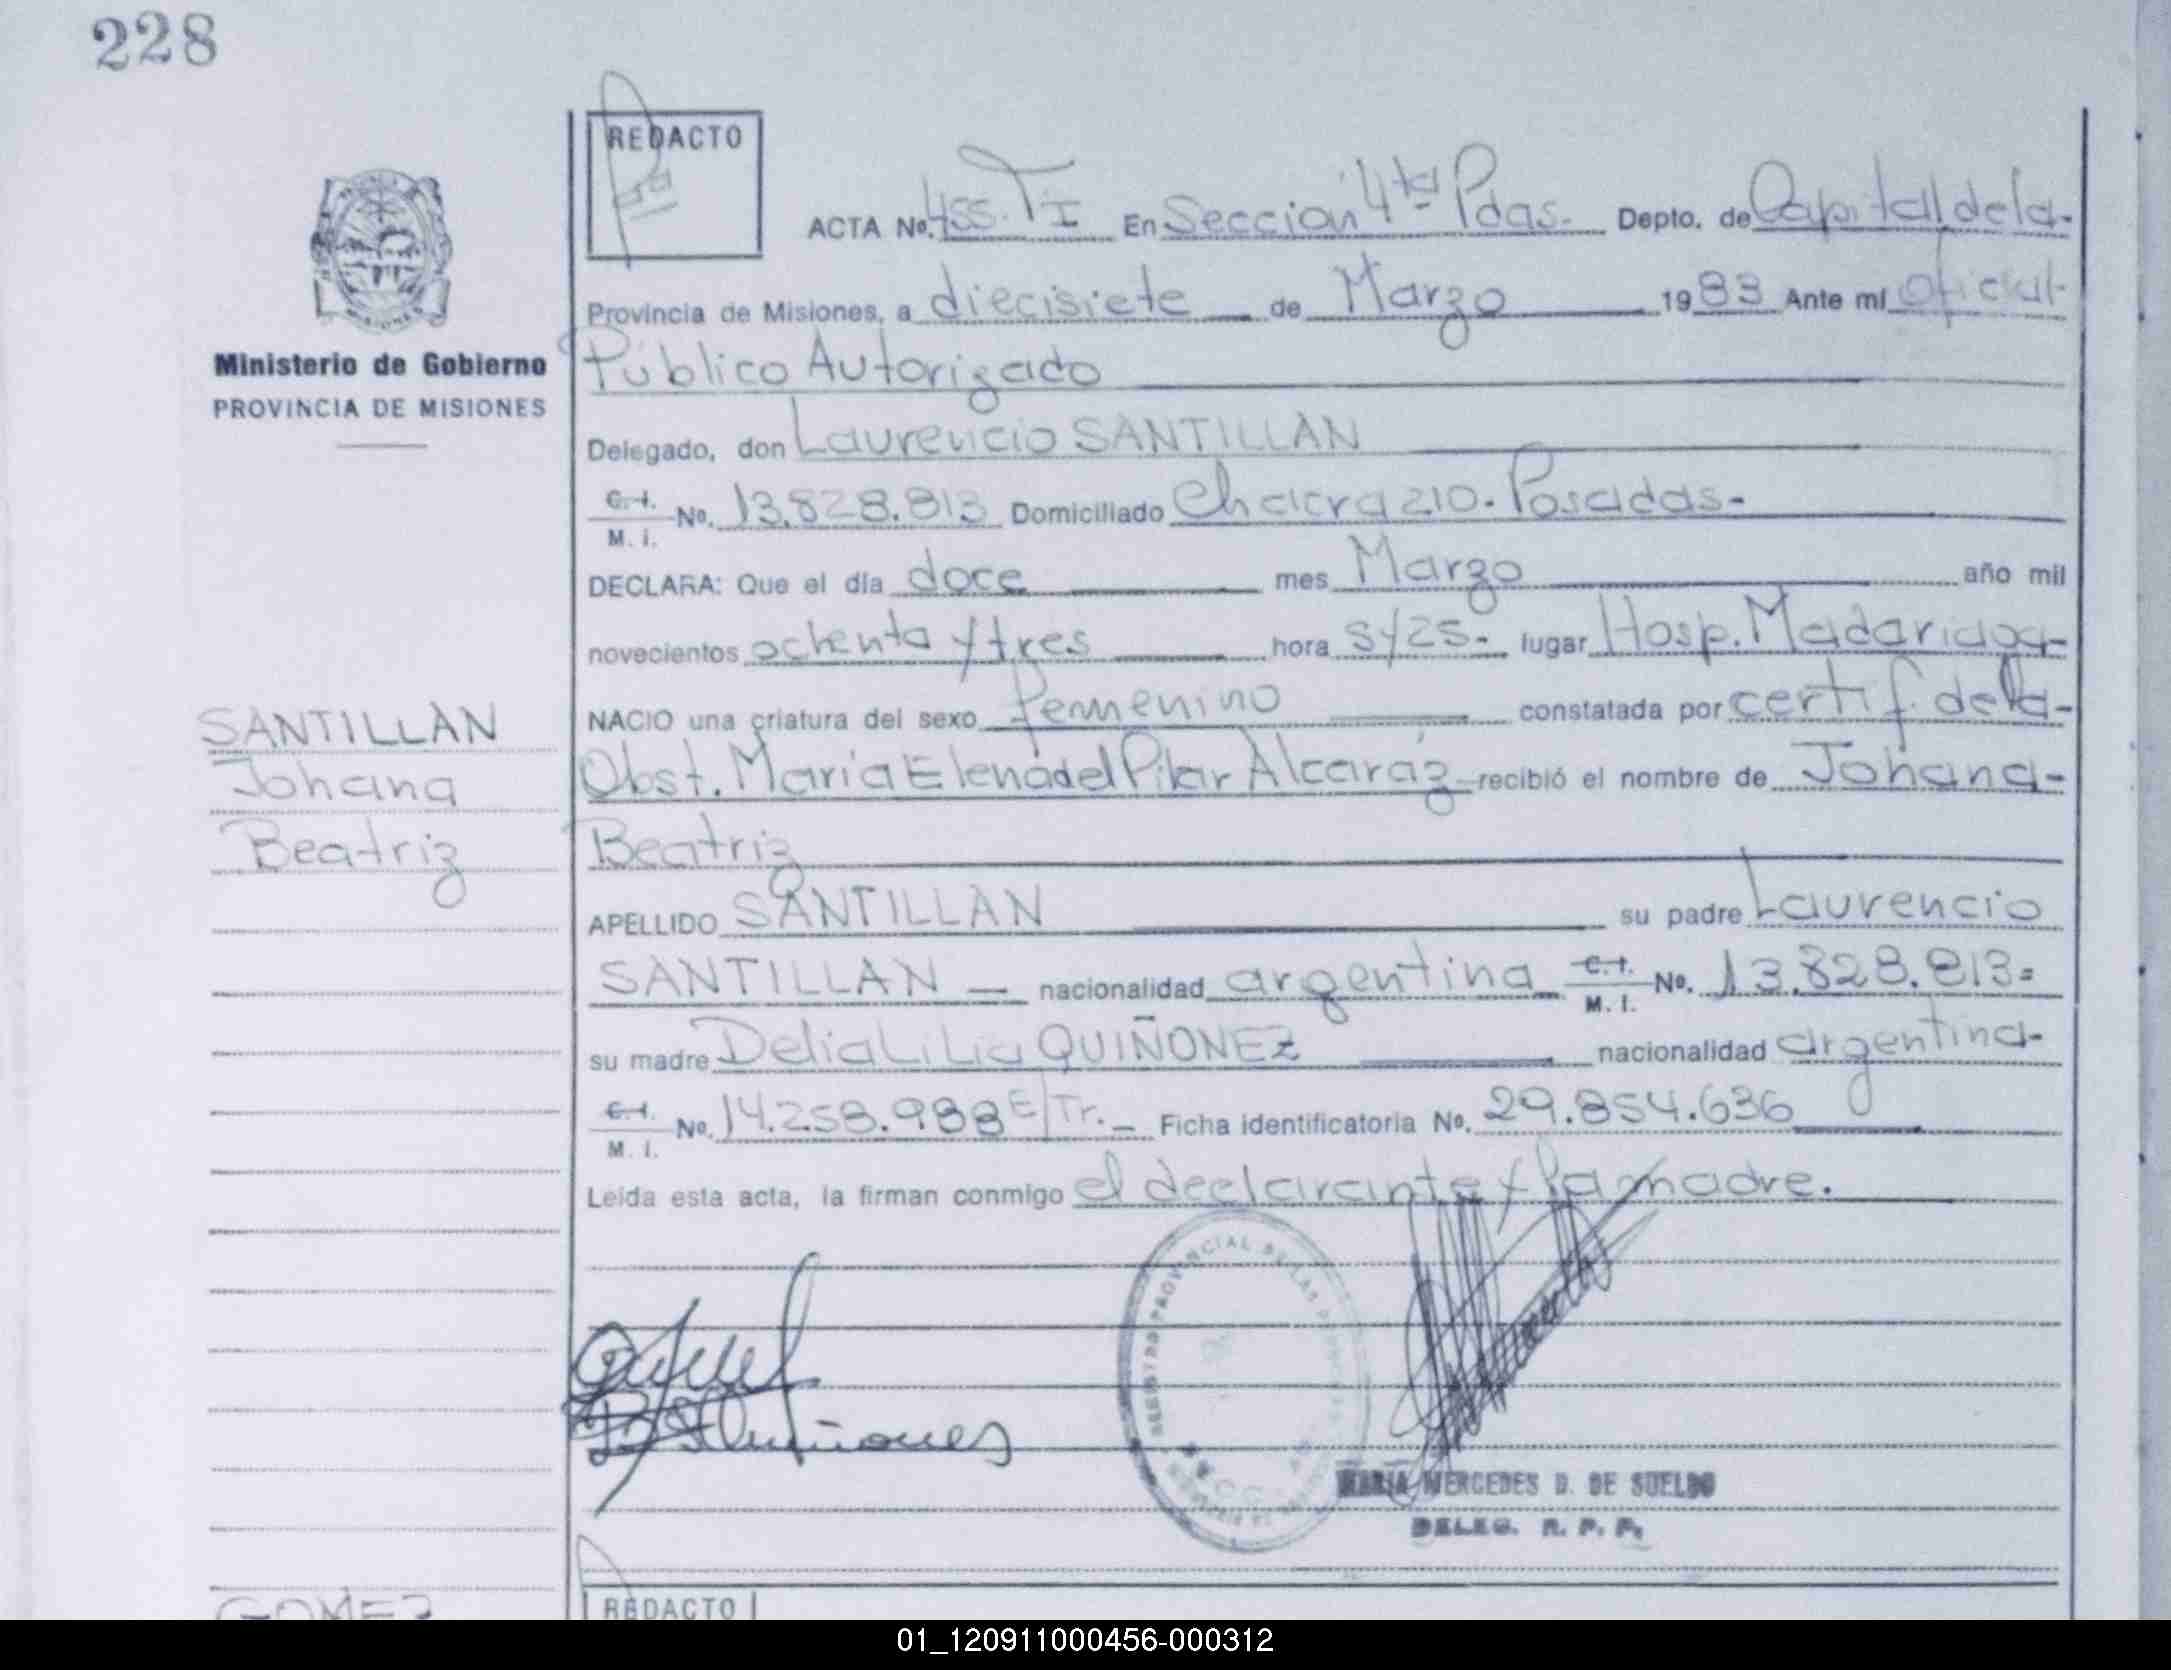 228
REDACTO
ACTA Nº. 455. TI En Sección 4ta Pdas.- Depto. de Capital de la-
Provincia de Misiones, a diecisiete de Marzo 1983 Ante mí Oficial-
Público Autorizado
Ministerio de Gobierno
PROVINCIA DE MISIONES
Delegado, don Laurencio SANTILLAN
C.I. M.I. Nº. 13.828.813 Domiciliado Chacra 210.- Posadas.-
DECLARA: Que el día doce mes Marzo año mil
novecientos ochenta y tres hora 5y25- lugar Hosp. Madariaga-
NACIO una criatura del sexo femenino constatada por certif. de la-
Obst. María Elena del Pilar Alcaráz recibió el nombre de Johana-
Beatriz
SANTILLAN
Johana
Beatriz
APELLIDO SANTILLAN su padre Laurencio
SANTILLAN nacionalidad argentina C.I. M.I. Nº. 13.828.813=
su madre Delia Lilia QUIÑONEZ nacionalidad argentina-
C.I. M.I. Nº. 14.258.988 E/Tr. Ficha identificatoria Nº. 29.854.636
Leída esta acta, la firman conmigo el declarante y la madre.
REGISTRO PROVINCIAL DE LAS
MARIA MERCEDES D. DE SUELDO
DELEG. R. P. P.
GOMEZ
REDACTO
01_120911000456-000312